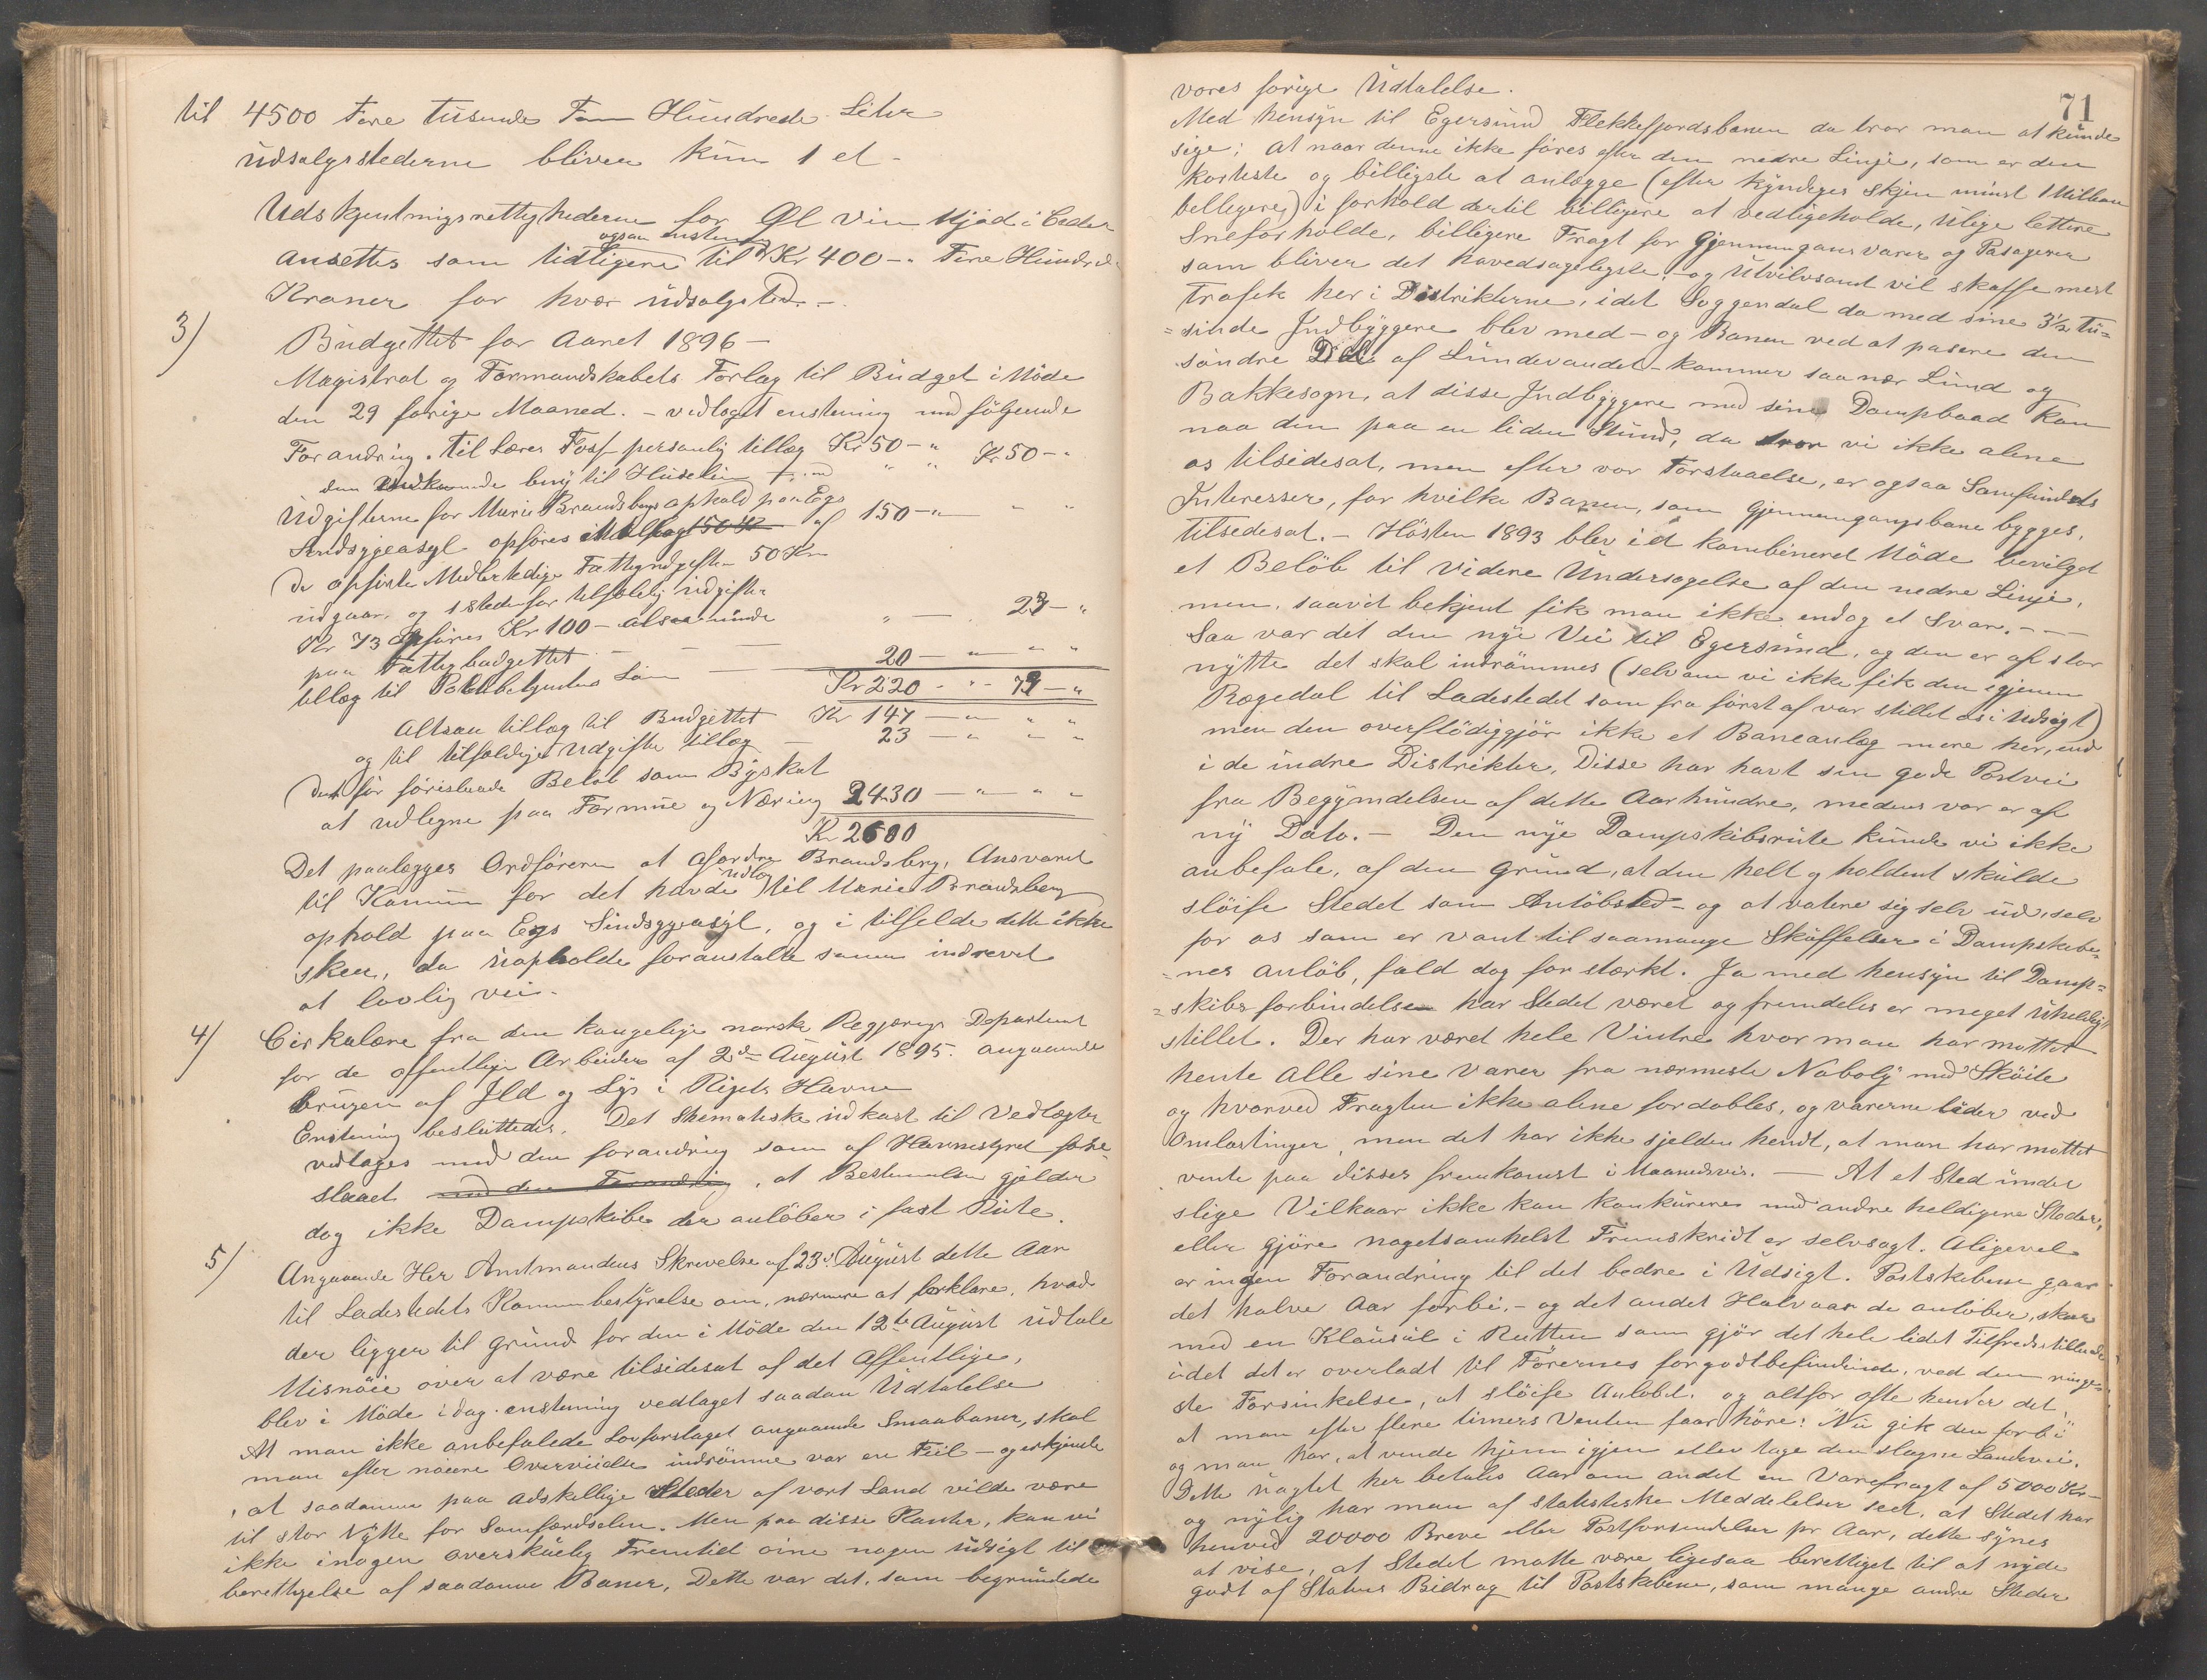 til 4500 Fire tusende Fem Hundrede Liter
udsalgsstederne bliver kun 1 et -
Udskjenkningsrettighederne for Øl Vin Mjød i Ceder
ogsaa enstem
ansettes som tidligere til Kr 400 - Fire Hundrede
Kroner for hver udsalgsted. -
3) Budgettet for Aaret 1896 -
Magistrat og Formandskabets Forlag til Budget i Møde
den 29 forige Maaned. - vedtaget enstemig med følgende
Forandring. til Lærer Foss personlig tillæg Kr 50 - " Kr 50 - "
den vedkommende beny til Huseleie
Udgifterne for Marie Brandsbergs ophold paa Egs
Sindsygeasyl opføres af 150 - "
De opførte Medlertedige Fattigudgifter 50 Kr
udgaar. og istedefor tilfældig udgifter
Kr 73 opføres Kr 100 - altsaa mindre " - 23 - "
paa Fattigbudgettet - - -
tillæg til Politibetjentens Løn 20 - " - "
Kr 220 - " - 73 - "
Altsaa tillæg til Budgettet Kr 147 - " " "
og til tilfældige Udgifter tillæg - 23 - " - "
det før førislaaede Beløb som Byskat
at udlegne paa Formue og Næring 2430 - " - "
Kr 2600
Det paalægges Ordføreren at afordre Brandsberg, Ansvaret
udlæg
til Komun for det havde til Marie Brandsberg
ophold paa Egs Sindsygeasyl, og i tilfelde dette ikke
skeer, da uopholde foranstalte samme indrevet
at lovlig vei.
4) Cirkulære fra den kongelige norske Regjerings Departement
for de offentlige Arbeider af 2den August 1895. angaaende
brugen af Ild og Lys i Rigets Havne
Enstemig besluttedes. Det Skematiske udkast til Vedtægter
vedtages med den forandring som af Havnestyret fore-
slaaet med den Forandring, at Bestemmelsen gjelder
dog ikke Dampskibe der anløber i fast Rute.
5) Angaaende Her Amtmandens Skrivelse af 23d August dette Aar
til Ladestedets Komunbestyrelse om, nærmere at forklare, hvad
der ligger til grund for den i Møde den 12te August udtale
Misnøie over at være tilsidesat af det Offentlige,
blev i Møde idag enstemig vedtaget saadan Udtalelse
At man ikke anbefalede Lovforslaget angaaende Smaabaner, skal
man efter nøiere Overveielse indrømme var en Feil - og erkjende
, at saadanne paa adskellige Steder af vort Land vilde være
til stor Nytte for Samfærdselen. Men paa disse Kanter, kan vi
ikke i nogen overskuelig Fremtid øine nogen udsigt til
berettigelse af saadanne Baner. Dette var det, som begrundede
71
vores forige Udtalelse.
Med hensyn til Egersund Flekkefjordsbanen da tror man at kunde
sige; at naar denne ikke føres efter den nedre Linje, som er den
korteste og billigste at anlægge (efter kyndiges skjøn mindst 1 Million
billigere) i forhold dertil billigere at vedligeholde, ulige lettere
Sneforholde, billigere Fragt for Gjennemgansvarer og Pasagerer
som bliver det hovedsageligste - og Utvilsomt vil skaffe mest
Trafik her i Distrikterne, idet Soggendal da med sine 3½ Tu-
=sinde Indbyggere blev med - og Banen ved at pasere den
søndre Del af Lundevandet - kommer saa nær Lund og
Bakkesogn, at disse Indbyggere med sine Dampbaad kan
naa den paa en liden Stund, da tror vi ikke alene
os tilsidesat, men efter vor Forstaaelse, er ogsaa Samfundets
Interesser, for hvilke Banen, som Gjennemgangsbane bygges,
tilsedesat. - Høsten 1893 blev i et kombineret Møde bevilget
et Beløb til videre Undersøgelse af den nedre Linje,
men, saavit bekjent fik man ikke endog et Svar. - -
Saa var det den nye Vei til Egersund, og den er af stor
nytte det skal indrømmes (selv om vi ikke fik den igjenem
Rægedal til Ladestedet som fra først af var stillet os i Udsigt)
men den overflødiggjør ikke et Baneanlæg mere her, end
i de indre Distrikter, Disse har havt sin gode Postvei
fra Begyndelsen af dette Aarhundre, medens vor er af
ny Dato. - Den nye Dampskibsrute kunde vi ikke
anbefale, af den grund, at den helt og holdent skulde
sløife Stedet som Anløbsted - og at votere sig selv ud, selv
for os som er vant til saamange Skuffelser i Dampskibe-
=nes anløb, fald dog for stærkt. Ja med hensyn til Damp=
=skibsforbindelsen har Stedet været og fremdeles er meget uheldigt
stillet. Der har været hele Vintre hvor man har mottet
hente alle sine Varer fra nærmeste Naboby med Skøite
og hvorved Fragten ikke alene fordobles, og varerne lider ved
Omlastinger, men det har ikke sjelden hendt, at man har mottet
vente paa disses fremkomst i Maanedsvis. - At et Sted under
slige Vilkaar ikke kan konkurere med andre heldigere Steder,
eller gjøre nogetsomhelst Fremskridt er selvsagt. Aligevel
er ingen Forandring til det bedre i Udsigt. Postskibene gaar
det halve Aar forbi, - og det andet Halvaar de anløber, sker
med en Klausul i Rutten som gjør det hele lidet Tilfredsstillende
idet det er overladt til Førernes forgodtbefindende, ved den ringe-
ste Forsinkelse, at sløife Anløbet. og altfor ofte hender det
at man efter flere timers Venten faar høre: "Nu gik den forbi"
og man har, at vende hjem igjen eller tage den slagne Landevei.
Dette uagtet her betales Aar om andet en Varefragt af 5000 Kr -
og nylig har man af statistiske Meddelelser seet, at Stedet har
henved 20000 Breve eller Postforsendelser pr Aar, dette synes
at vise, at Stedet motte være ligesaa berettiget til at nyde
godt af Statens Bidrag til Postskibene, som mange andre Steder